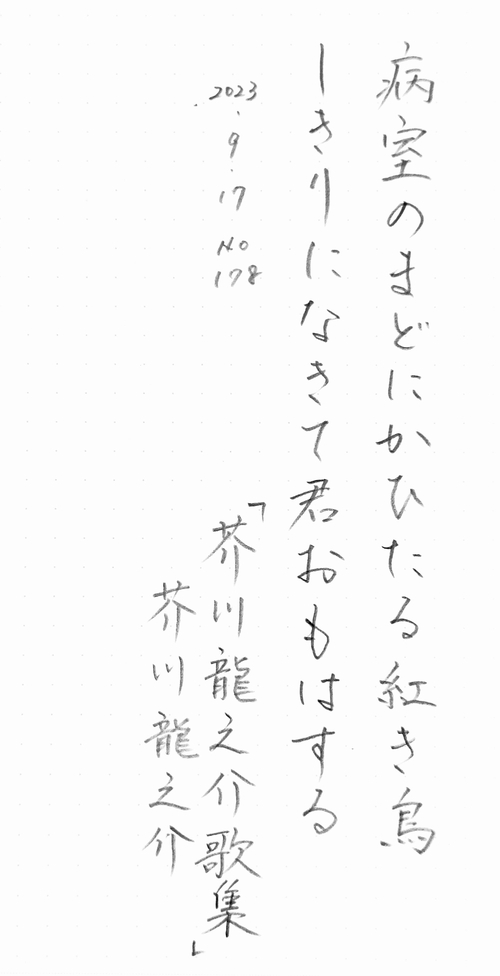 病室のまどにかひたる紅き鳥
しきりになきて君おもはする
2023.9.17 No 178
「芥川龍之介歌集」
芥川龍之介